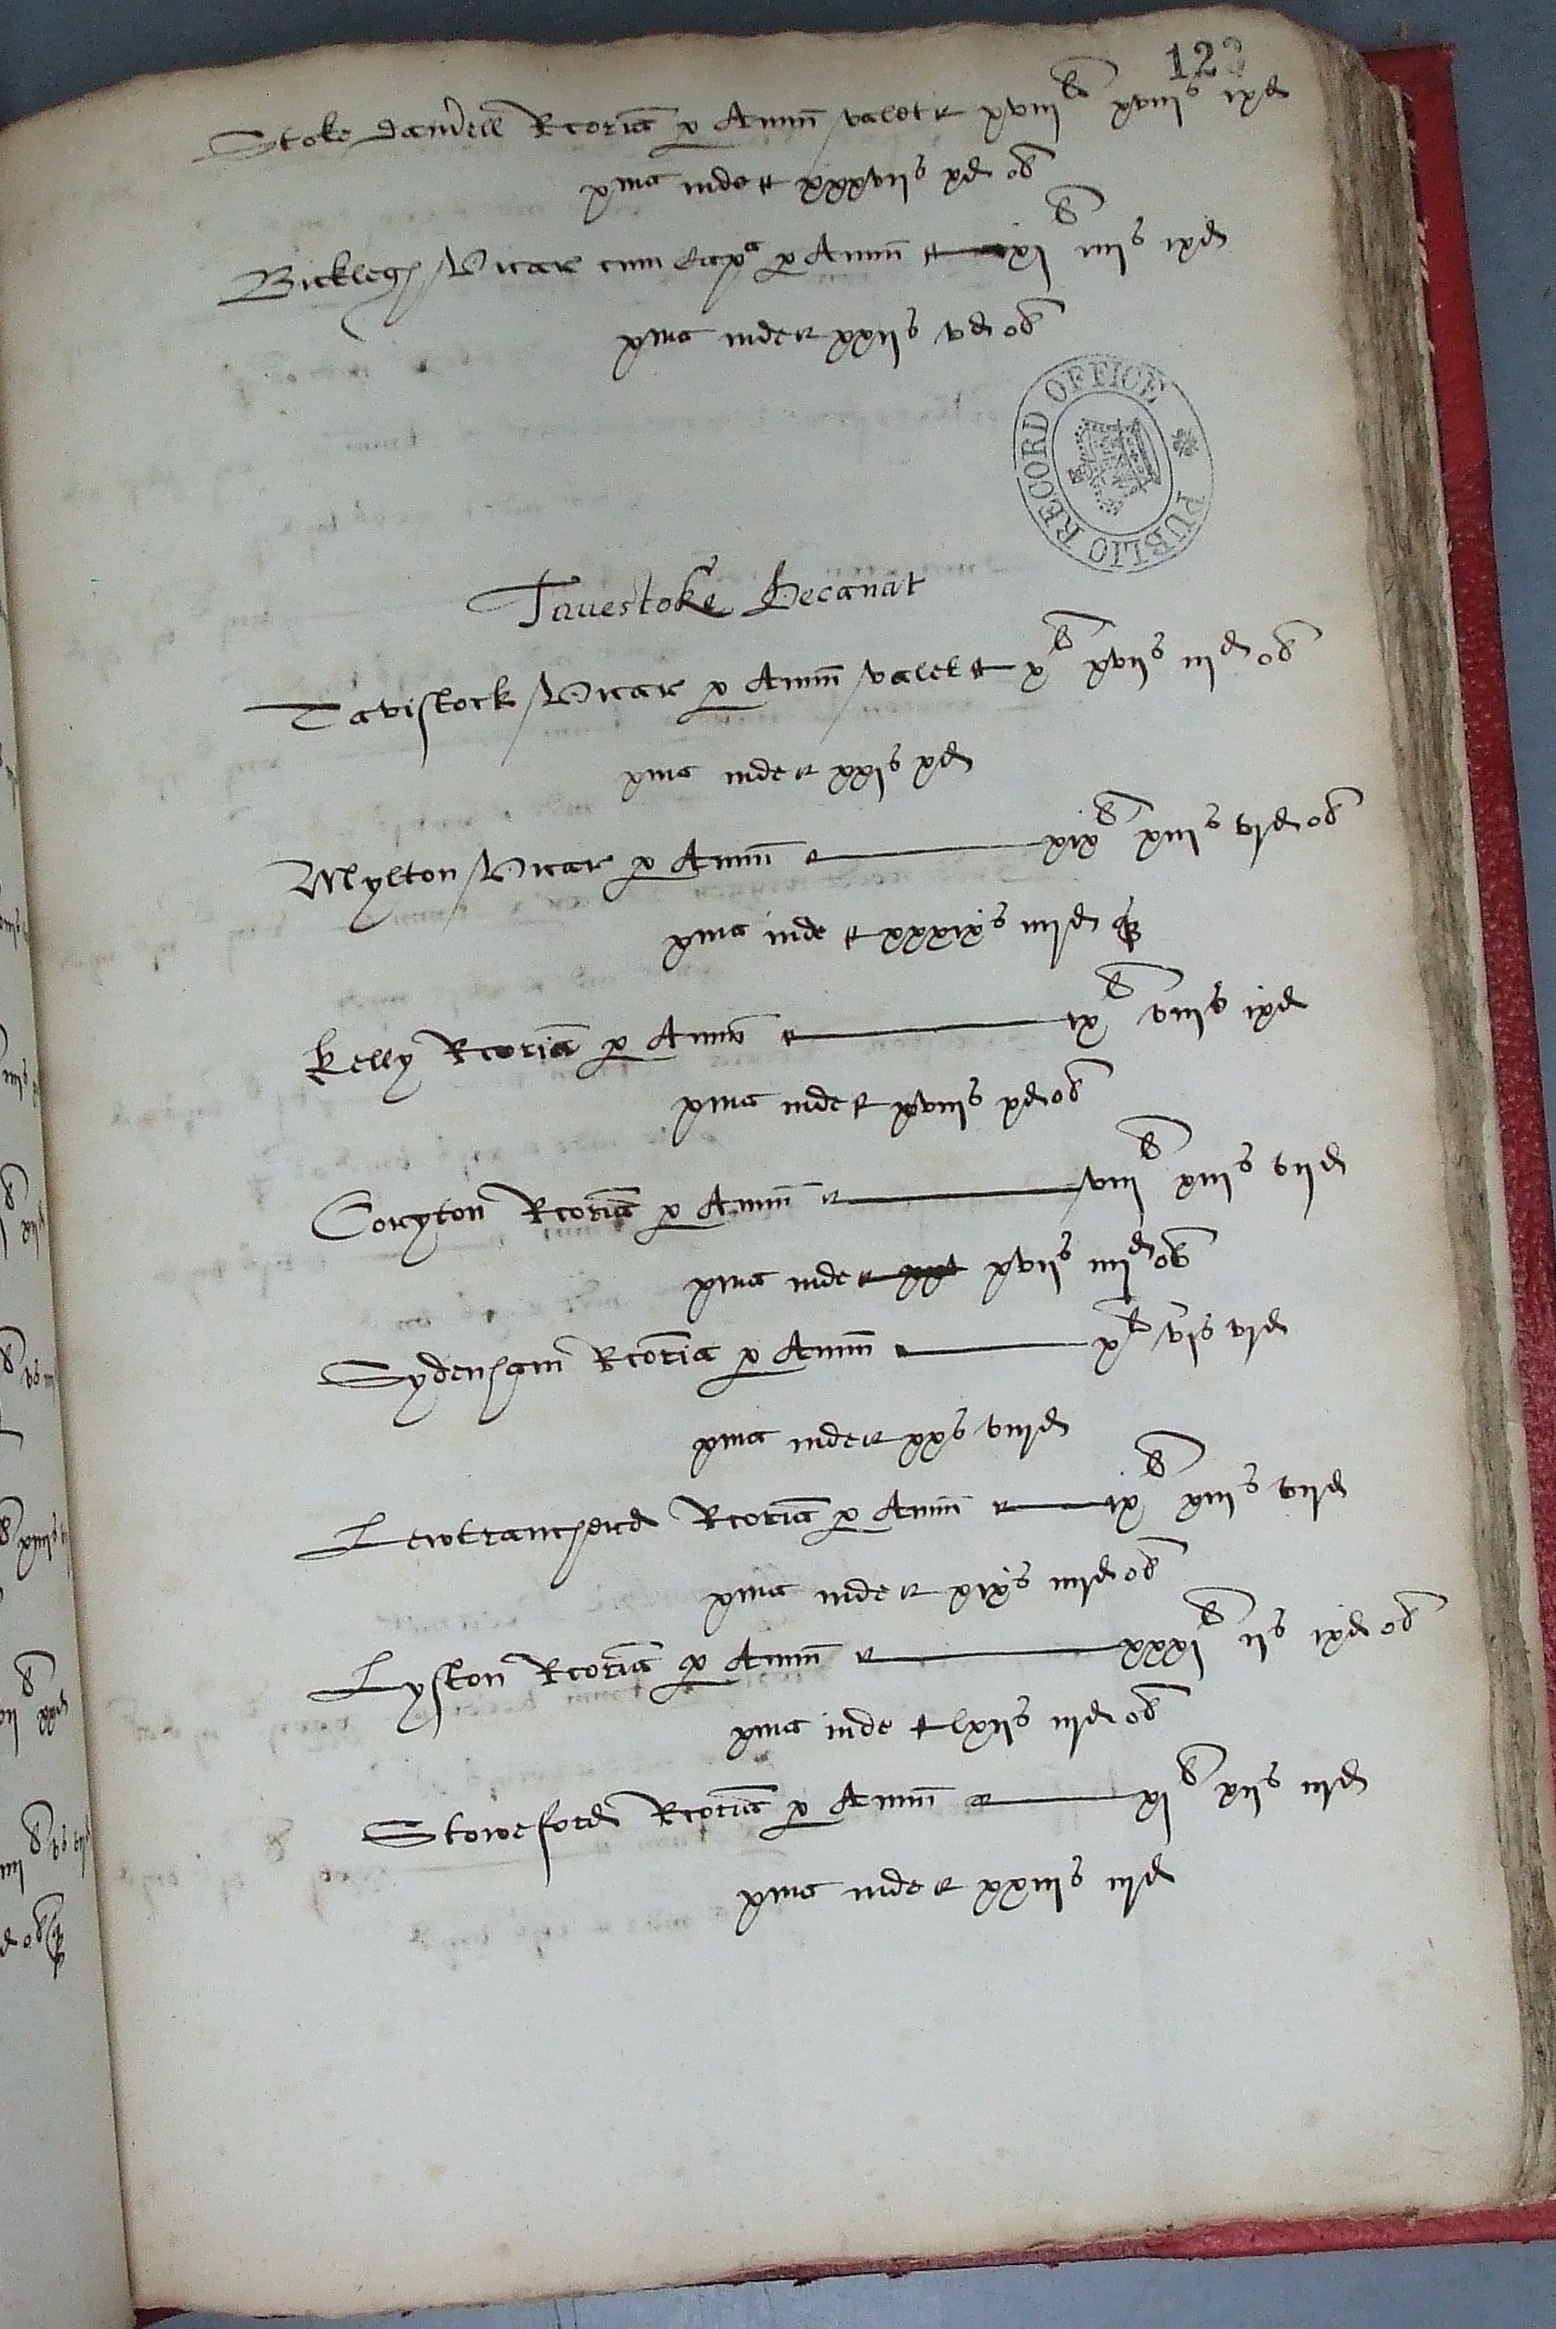 122
Stoke dam'ell Rcoria p Annu valet xviij li xviij s ix d
xma inde xxxvij s x d ob
Bicklegh Vicar cum Capa p Annu xj li iiij s ix d
xma inde xxij s v d ob
PUBLIC RECORD OFFICE
Tavestoke Decanat
Tavistock Vicar p Annu valet x li xvij s iij d ob
xma inde xxj s x d
Mylton Vicar p Annu xix li xiij s vj d ob
xma inde xxxix s iiij d q
Kelly Rcoria p Annu ix li viij s ix d
xma inde xviij s x d ob
Coryton Rcoria p Annu viij li xiij s vij d
xma inde xvij s iiij d ob
Sydenham Rcoria p Annu x li vj s vj d
xma inde xx s viij d
Lewtranchard Rcoria p Annu ix li xiij s vij d
xma inde xix s iiij d ob
Lyston Rcoria p Annu xxxj li ij s ix d ob
xma inde lxij s iij d ob
Stoweford Rcoria p Annu xj li xij s iij d
xma inde xxiij s iij d